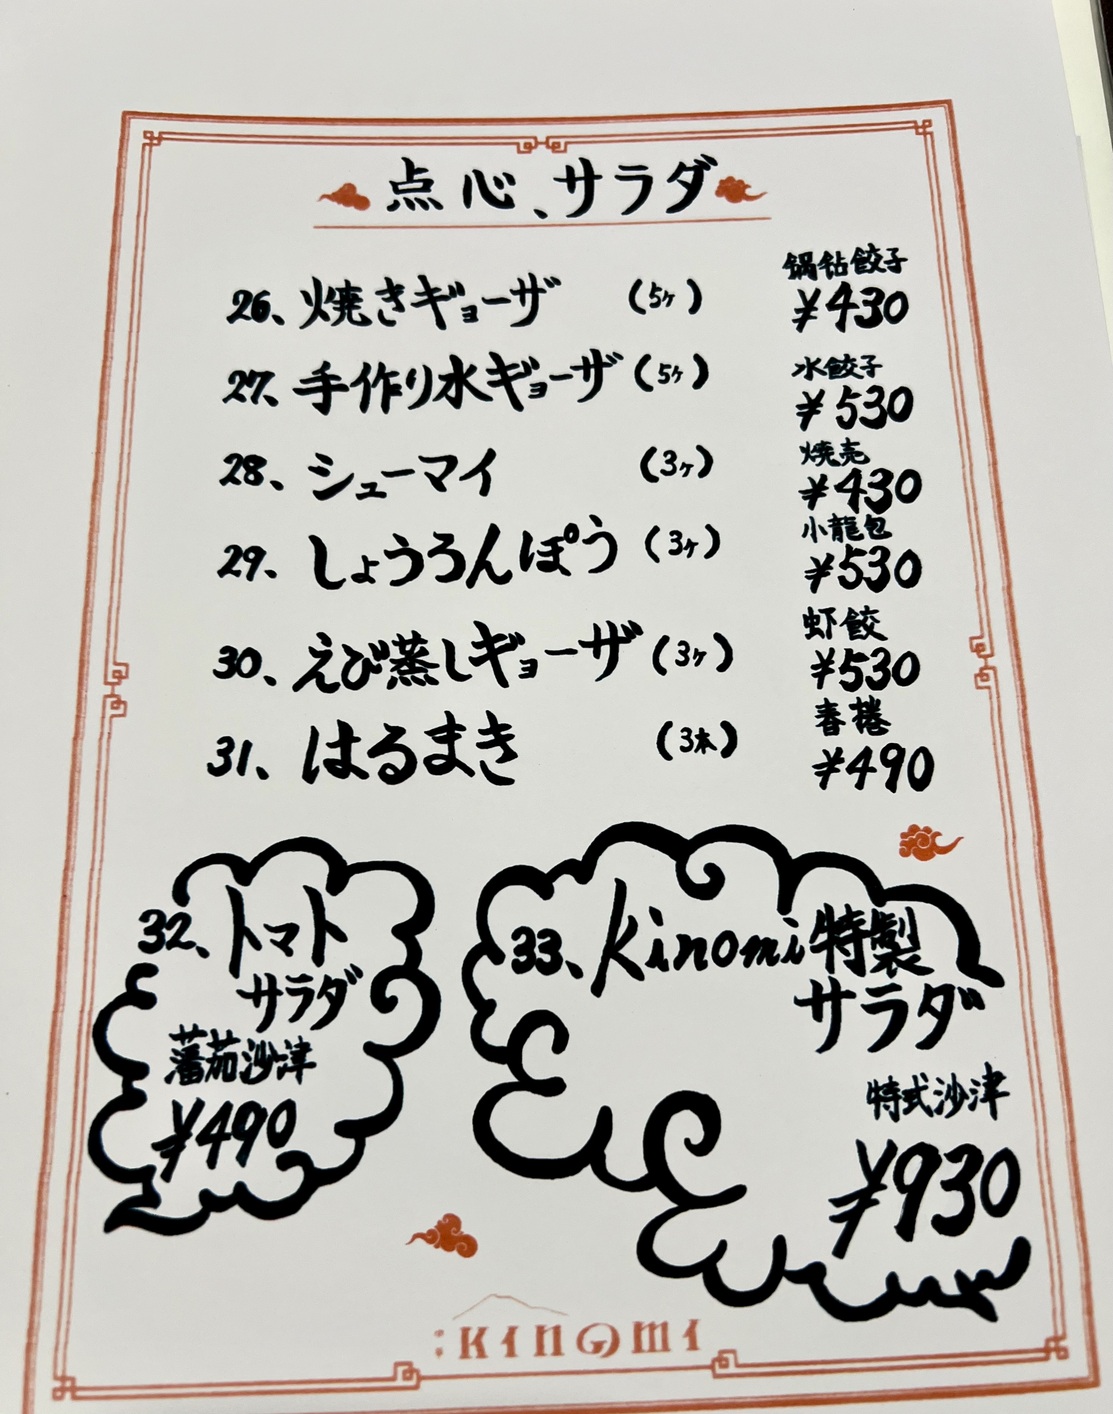 点心、サラダ
鍋鉆餃子
26、焼きギョーザ (5ヶ) ¥430
水餃子
27、手作り水ギョーザ (5ヶ) ¥530
焼売
28、シューマイ (3ヶ) ¥430
小龍包
29、しょうろんぽう (3ヶ) ¥530
虾餃
30、えび蒸しギョーザ (3ヶ) ¥530
春捲
31、はるまき (3本) ¥490
32、トマト
サラダ
蕃茄沙津
¥490
33、Kinomi特製
サラダ
特式沙津
¥930
:KINOMI